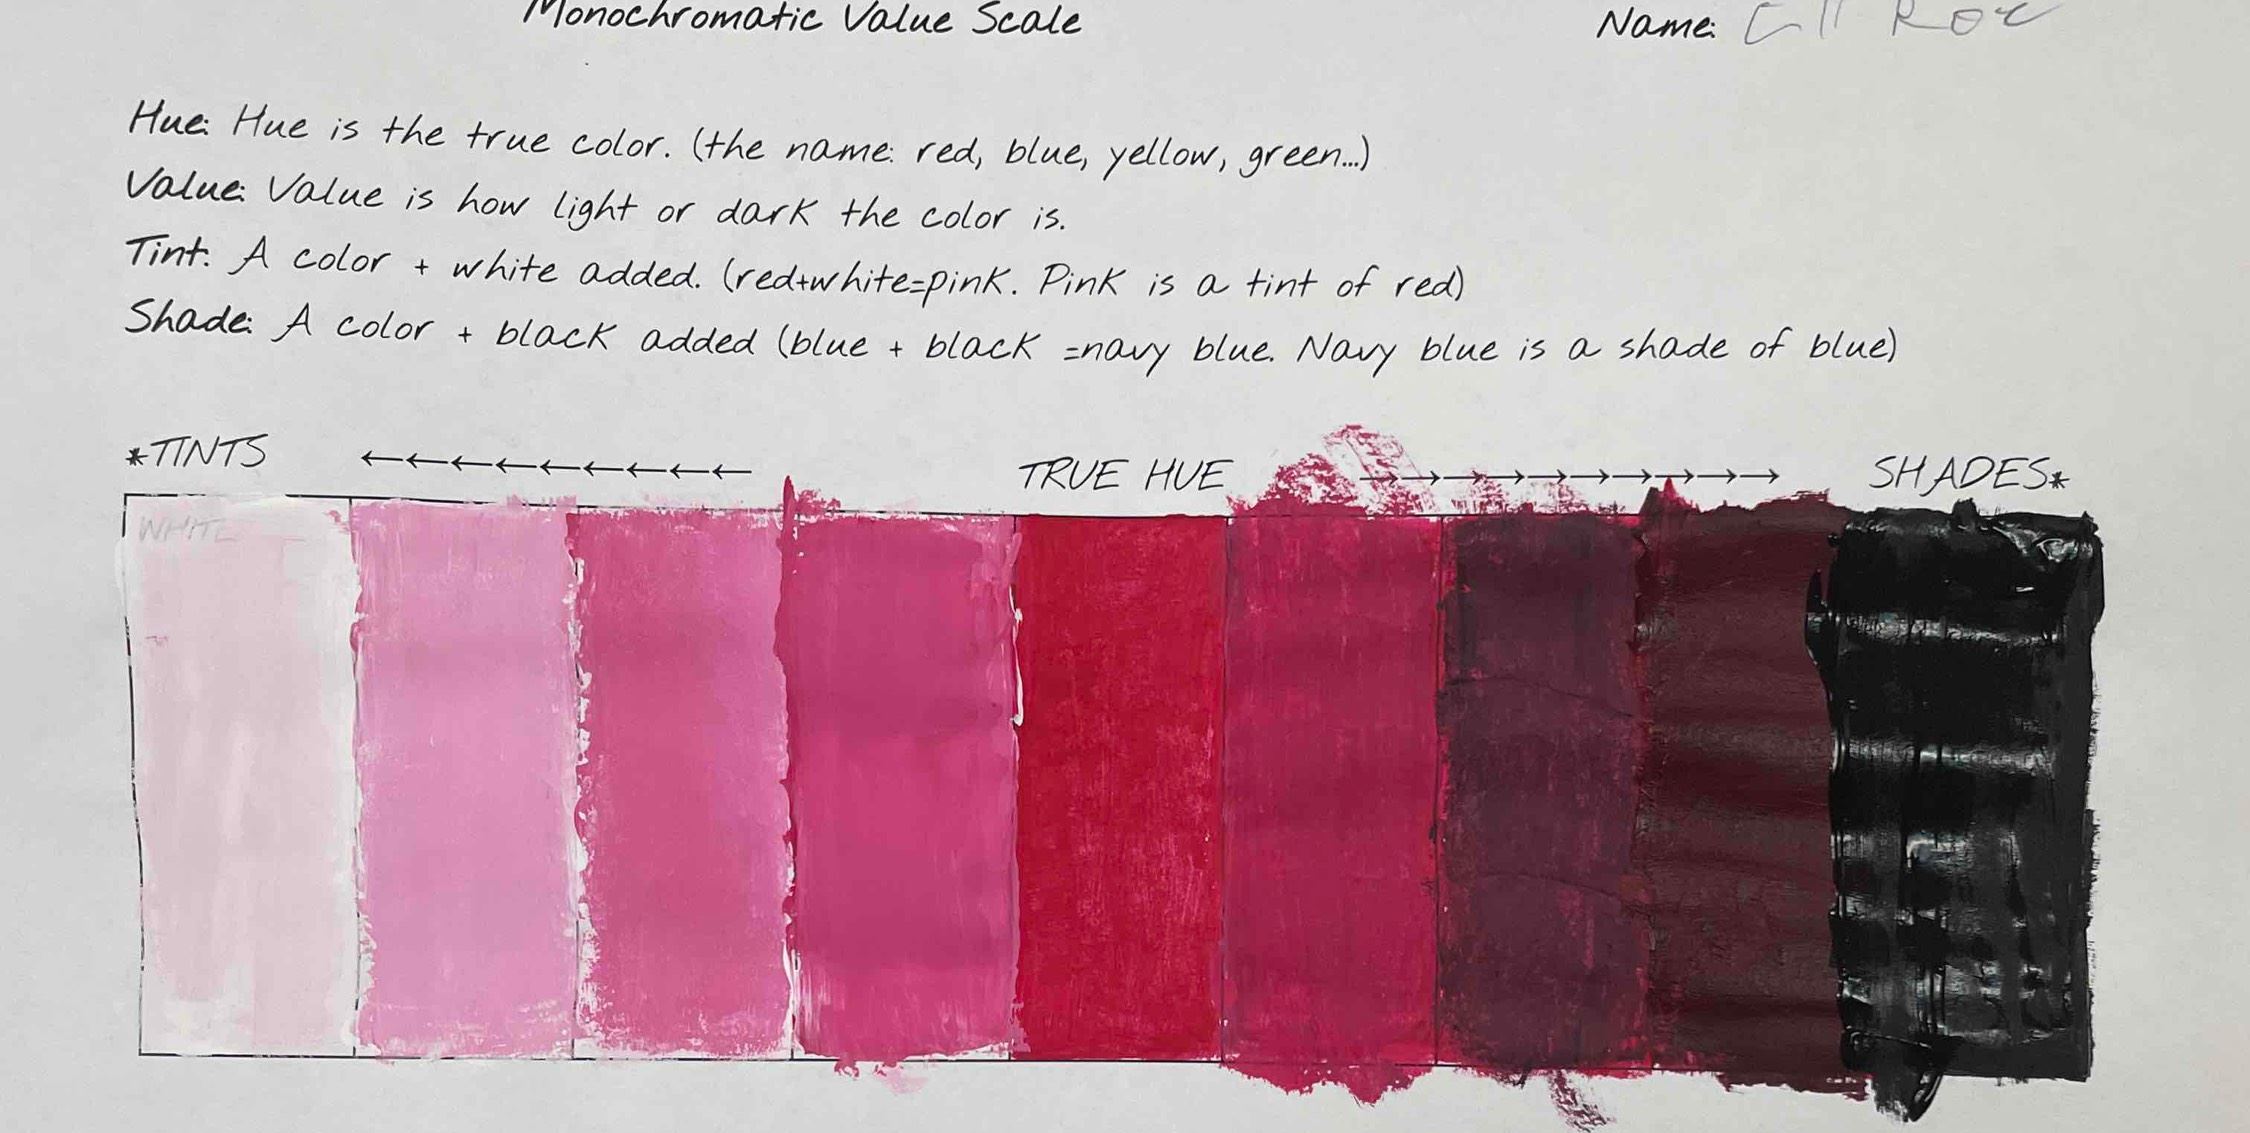 Monochromatic Value Scale Name:
Hue: Hue is the true color. (the name: red, blue, yellow, green...)
Value: Value is how light or dark the color is.
Tint: A color + white added. (red+white=pink. Pink is a tint of red)
Shade: A color + black added (blue + black =navy blue. Navy blue is a shade of blue)
*TINTS ←←←←←←←←← TRUE HUE →→→→→→→→→→ SHADES*
WHITE